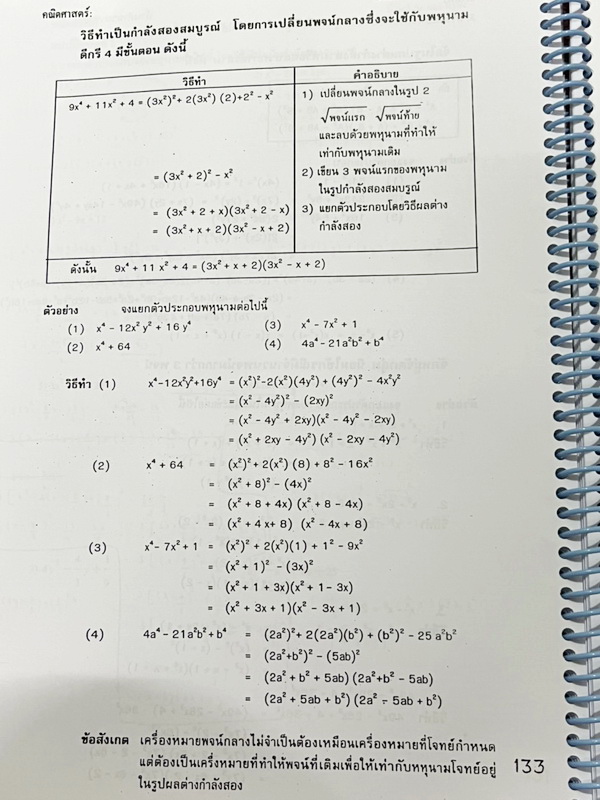 คณิตศาสตร์:
วิธีทำเป็นกำลังสองสมบูรณ์ โดยการเปลี่ยนพจน์กลางซึ่งจะใช้กับพหุนาม
ดีกรี 4 มีขั้นตอน ดังนี้
วิธีทำ
คำอธิบาย
9x⁴ + 11x² + 4 = (3x²)² + 2(3x²) (2)+2² – x²
1) เปลี่ยนพจน์กลางในรูป 2
√พจน์แรก √พจน์ท้าย
และลบด้วยพหุนามที่ทำให้
เท่ากับพหุนามเดิม
= (3x² + 2)² – x²
2) เขียน 3 พจน์แรกของพหุนาม
ในรูปกำลังสองสมบูรณ์
= (3x² + 2 + x)(3x² + 2 – x)
3) แยกตัวประกอบโดยวิธีผลต่าง
= (3x² + x + 2)(3x² – x + 2)
กำลังสอง
ดังนั้น 9x⁴ + 11 x² + 4 = (3x² + x + 2)(3x² – x + 2)
ตัวอย่าง จงแยกตัวประกอบพหุนามต่อไปนี้
(1) x⁴ – 12x² y² + 16 y⁴ (3) x⁴ – 7x² + 1
(2) x⁴ + 64 (4) 4a⁴ – 21a²b² + b⁴
วิธีทำ (1) x⁴–12x²y²+16y⁴ = (x²)²–2(x²)(4y²) + (4y²)² – 4x²y²
= (x² – 4y²)² – (2xy)²
= (x² – 4y² + 2xy)(x² – 4y² – 2xy)
= (x² + 2xy – 4y²) (x² – 2xy – 4y²)
(2) x⁴ + 64 = (x²)² + 2(x²) (8) + 8² – 16x²
= (x² + 8)² – (4x)²
= (x² + 8 + 4x) (x² + 8 – 4x)
= (x² + 4 x+ 8) (x² – 4x + 8)
(3) x⁴ – 7x² + 1 = (x²)² + 2(x²)(1) + 1² – 9x²
= (x² + 1)² – (3x)²
= (x² + 1 + 3x)(x² + 1 – 3x)
= (x² + 3x + 1)(x² – 3x + 1)
(4) 4a⁴ – 21a²b² + b⁴ = (2a²)² + 2(2a²)(b²) + (b²)² – 25 a²b²
= (2a²+b²)² – (5ab)²
= (2a² + b² + 5ab) (2a²+b² – 5ab)
= (2a² + 5ab + b²) (2a² – 5ab + b²)
ข้อสังเกต เครื่องหมายพจน์กลางไม่จำเป็นต้องเหมือนเครื่องหมายที่โจทย์กำหนด
แต่ต้องเป็นเครึ่งหมายที่ทำให้พจน์ที่เดิมเพื่อให้เท่ากับหหุนามโจทย์อยู่ 133
ในรูปผลต่างกำลังสอง